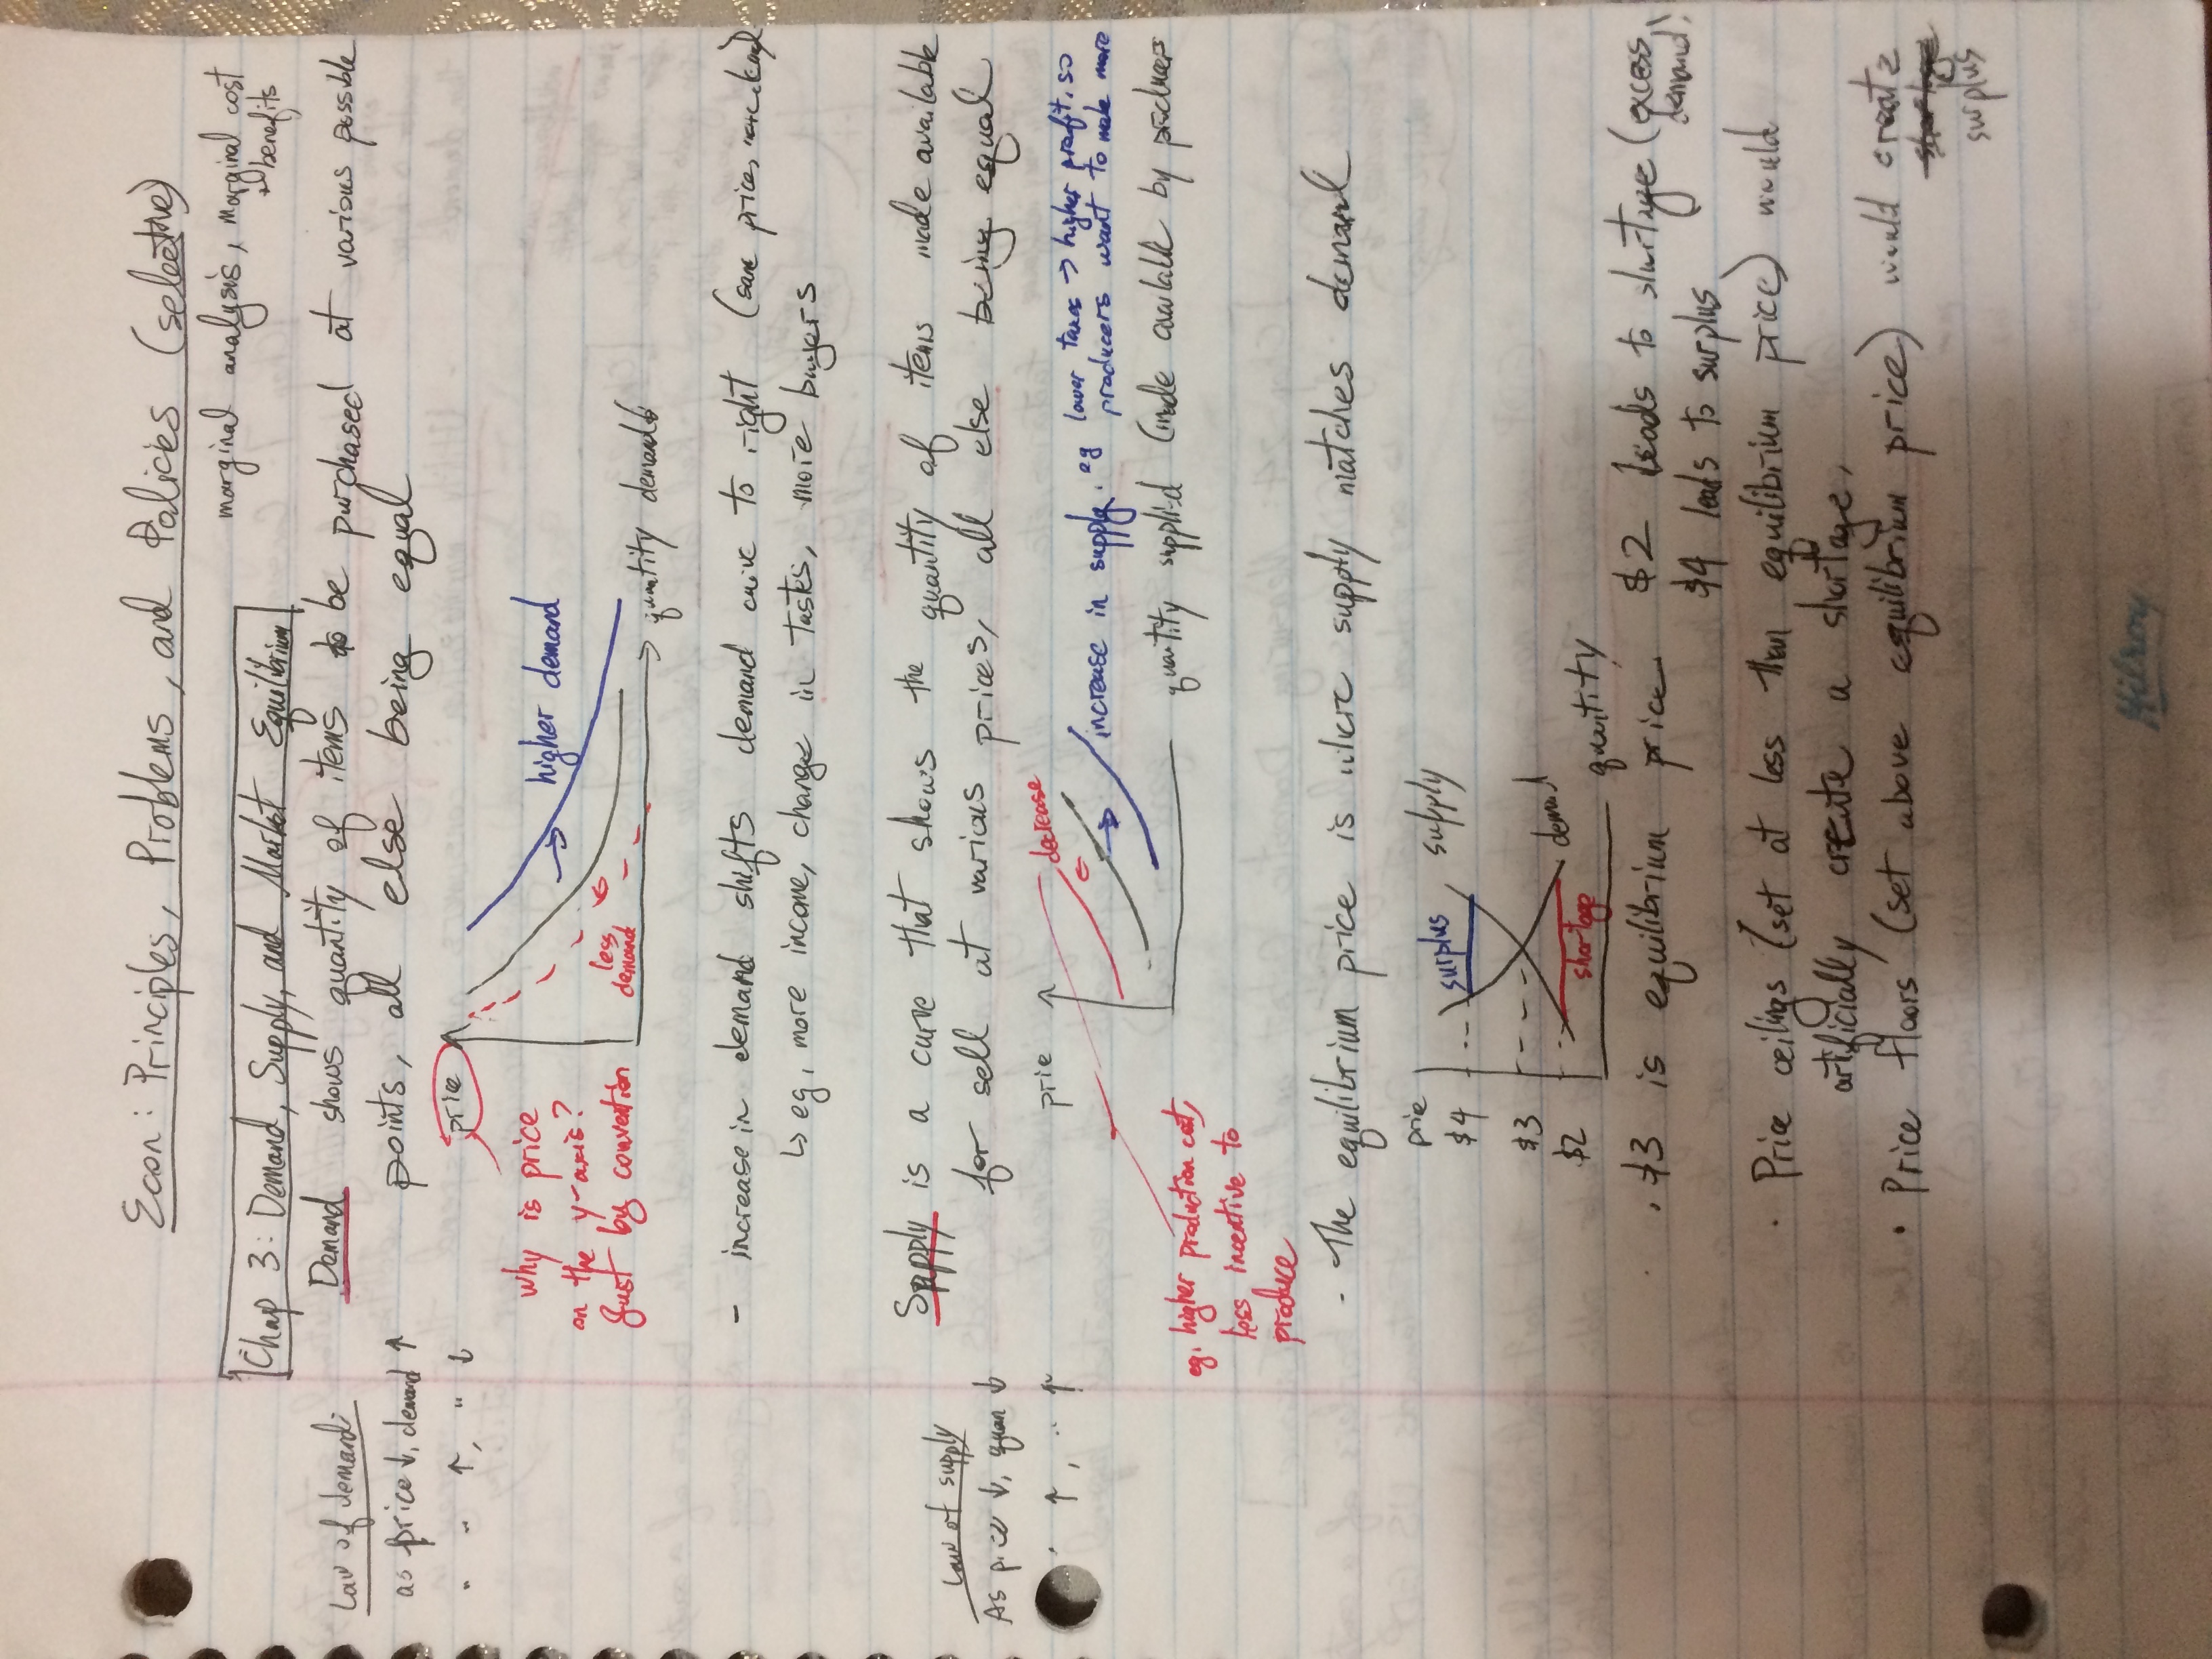 Econ: Principles, Problems, and Policies (selective)
marginal analysis, marginal cost
+ benefits
Chap 3: Demand, Supply, and Market Equilibrium
Law of demand:
as price ↓, demand ↑
" " ↑, " ↓
Demand shows quantity of items to be purchased at various possible
points, all else being equal
price
why is price
on the y-axis?
Just by convention
higher demand
less
demand
quantity demand
- increase in demand shifts demand curve to right (same price, more
↳ eg, more income, change in tastes, more buyers
Law of supply
As price ↓, quan ↓
" ↑, " ↑
Supply is a curve that shows the quantity of items made available
for sell at various prices, all else being equal
price
decrease
increase in supply, eg lower taxes → higher profit, so
producers want to make more
quantity supplied (made available by producers
eg. higher production cost,
less incentive to
produce
- The equilibrium price is where supply matches demand
price
$4
$3
$2
surplus
supply
demand
shortage
quantity
. $3 is equilibrium price $2 leads to shortage (excess
demand)
$4 leads to surplus
· Price ceilings (set at less than equilibrium price) would
artificially create a shortage,
· Price floors (set above equilibrium price) would create
shortage
surplus
Hilroy